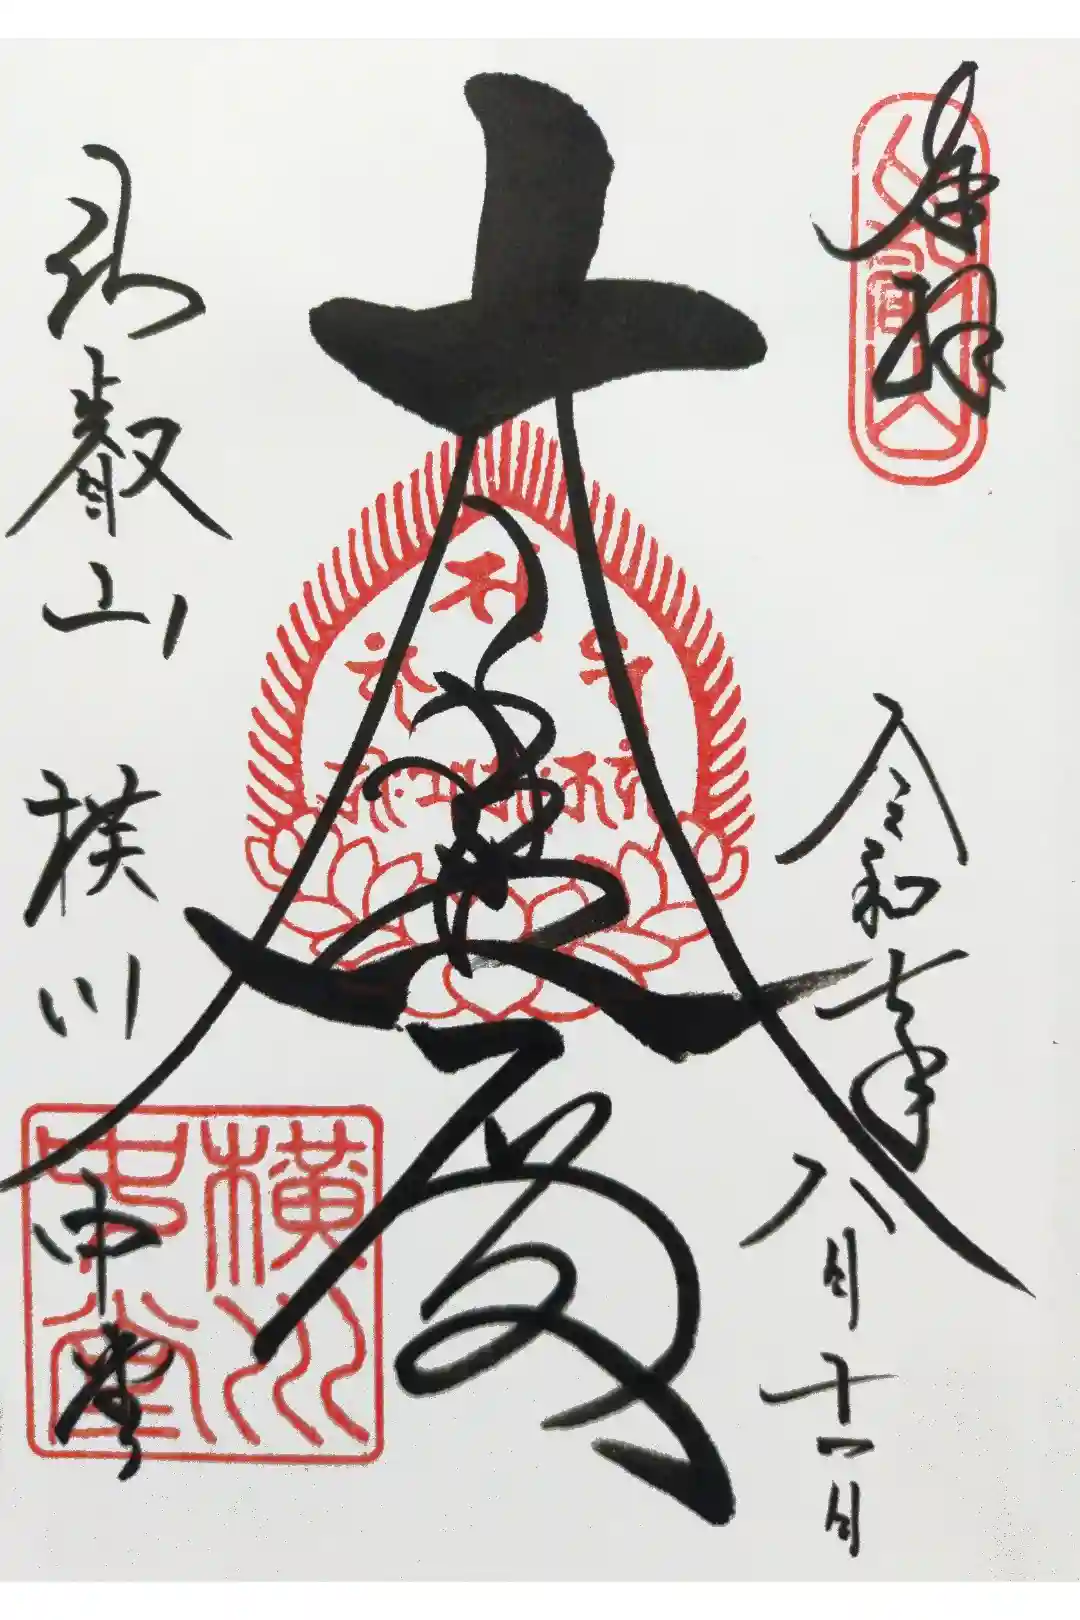 奉拝
令和七年八月十一日
大
比叡山 横川 中堂
横川
中堂
比叡山